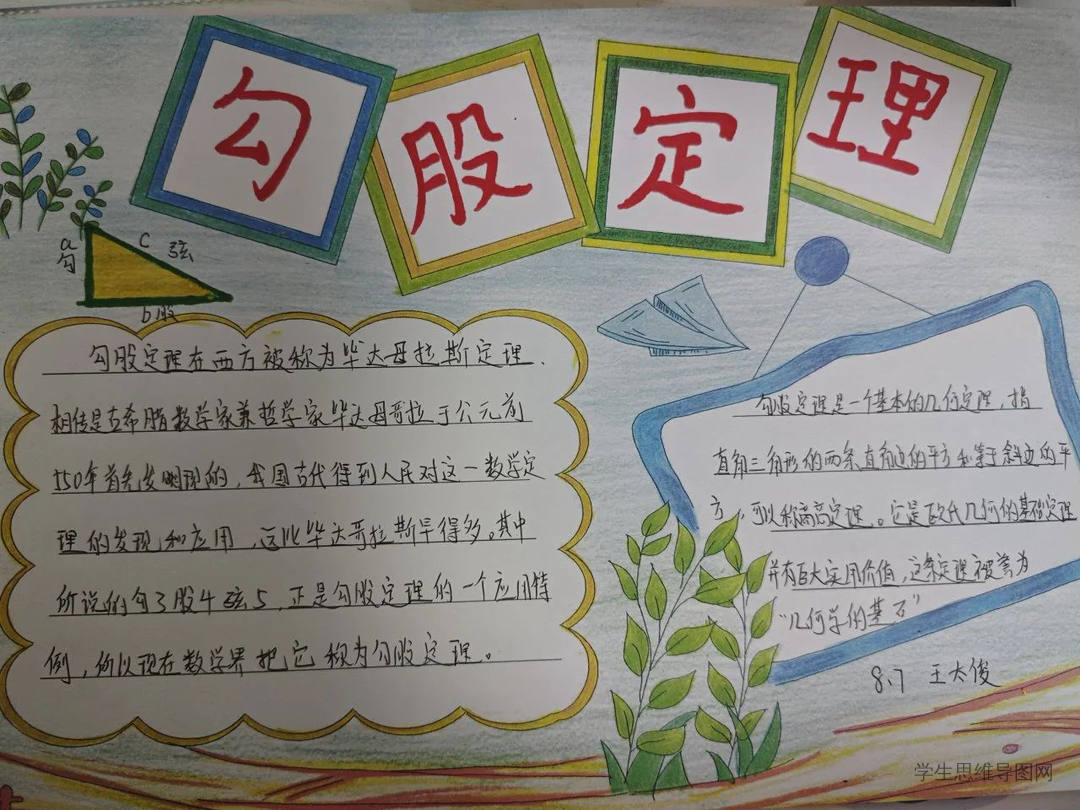 勾股定理
a
勾
c 弦
b 股
勾股定理在西方被称为毕达母拉斯定理、
相传是古希腊数学家兼哲学家毕达母哥拉于公元前
550年首先发明现的,我国古代得到人民对这一数学定
理的发现和应用,远比毕达哥拉斯早得多。其中
所说的勾3股4弦5,正是勾股定理的一个应用特
例,所以现在数学界把它称为勾股定理。
勾股定理是一个基本的几何定理,指
直角三角形的两条直角边的平方和等于斜边的平
方,可以称商高定理。它是欧氏几何的基础定理
并有巨大实用价值,这条定理被誉为
“几何学的基石”
8.7 王大俊
学生思维导图网